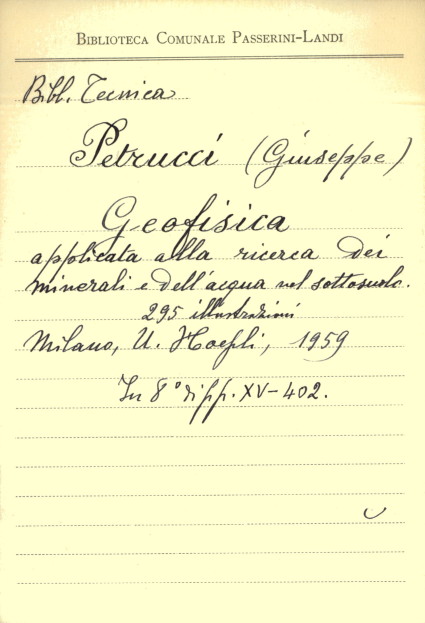 Biblioteca Comunale Passerini-Landi
Bibl. Tecnica
Petrucci (Giuseppe)
Geofisica
applicata alla ricerca dei
minerali e dell'acqua nel sottosuolo.
295 illustrazioni
Milano, U. Hoepli, 1959
In 8° di pp. XV-402.